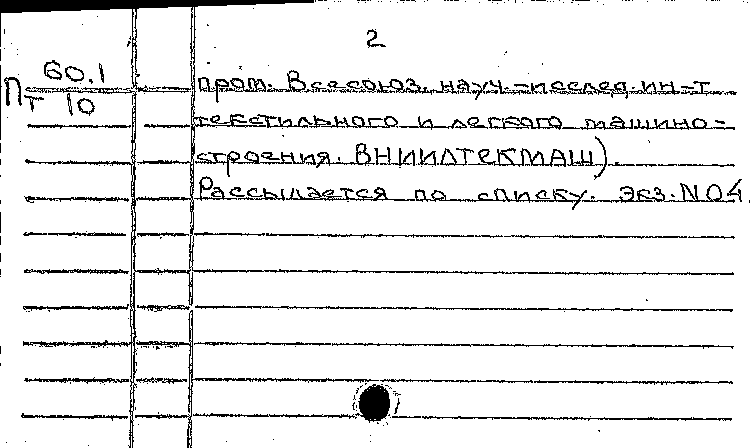 2
60.1
Пт 10
пром. Всесоюз. науч.-исслед. ин-т
текстильного и легкого машино-
строения. ВНИИЛТЕКМАШ).
Рассылается по списку. Экз. N 04.